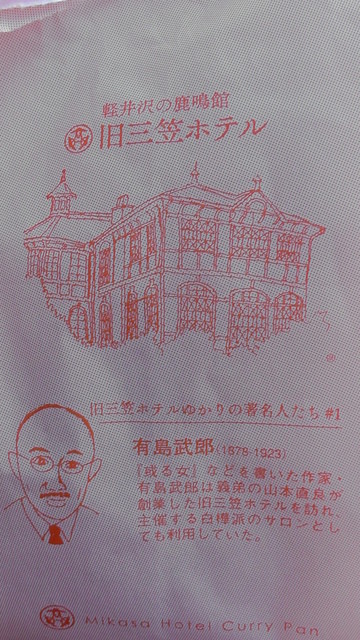 軽井沢の鹿鳴館
旧三笠ホテル
旧三笠ホテルゆかりの著名人たち #1
有島武郎(1878-1923)
『或る女』などを書いた作家・
有島武郎は義弟の山本直良が
創業した旧三笠ホテルを訪れ、
主催する白樺派のサロンとし
ても利用していた。
Mikasa Hotel Curry Pan